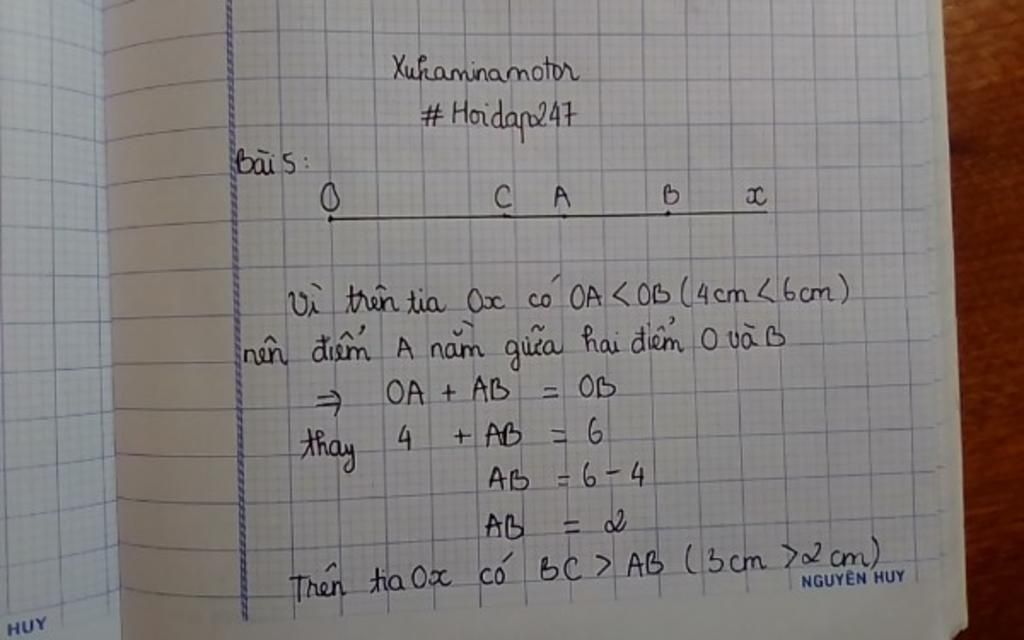 Xukaminamotor
#Hoidap247
Bài 5:
O C A B x
Vì trên tia Ox có OA < OB (4cm < 6cm)
nên điểm A nằm giữa hai điểm O và B
⇒ OA + AB = OB
thay 4 + AB = 6
AB = 6 - 4
AB = 2
Trên tia Ox có BC > AB (3cm > 2cm)
NGUYÊN HUY
HUY